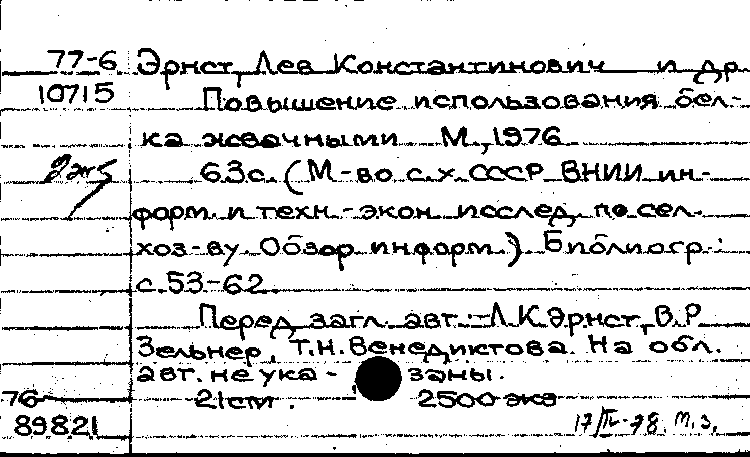 77-6 Эрнст, Лев Константинович и др
10715 Повышение использования бел-
ка жвачными М., 1976
63с. (М-во с.х. СССР ВНИИ ин-
форм. и техн.-экон. исслед. по сел.
хоз-ву. Обзор информ.) Библиогр.:
с.53-62.
Перед загл. авт.: Л.К.Эрнст, В.Р
Зельнер, Т.Н.Венедиктова. На обл.
авт. не ука- заны.
76- 21см. 2500 экз
89821 17/IV-78. м.з.